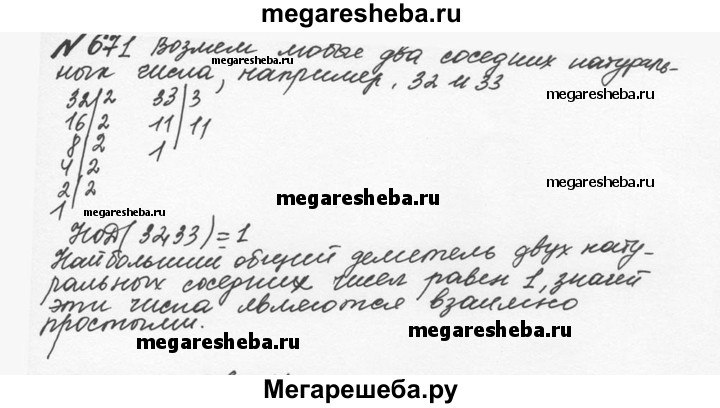 megaresheba.ru
№ 671 Возмем любые два соседних натураль-
ных числа, например, 32 и 33
megaresheba.ru
megaresheba.ru
32|2 33|3
16|2 11|11
8|2 1
4|2
2|2
1
megaresheba.ru
megaresheba.ru
megaresheba.ru
НОД(32,33)=1
Найбольший общий делитель двух нату-
ральных соседних чисел равен 1, значит
эти числа являются взаимно
простыми.
megaresheba.ru
megaresheba.ru
Мегарешеба.ру